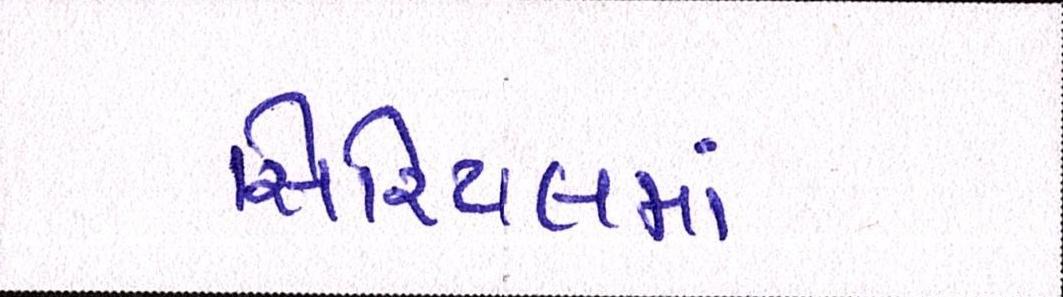 સિરિયલમાં